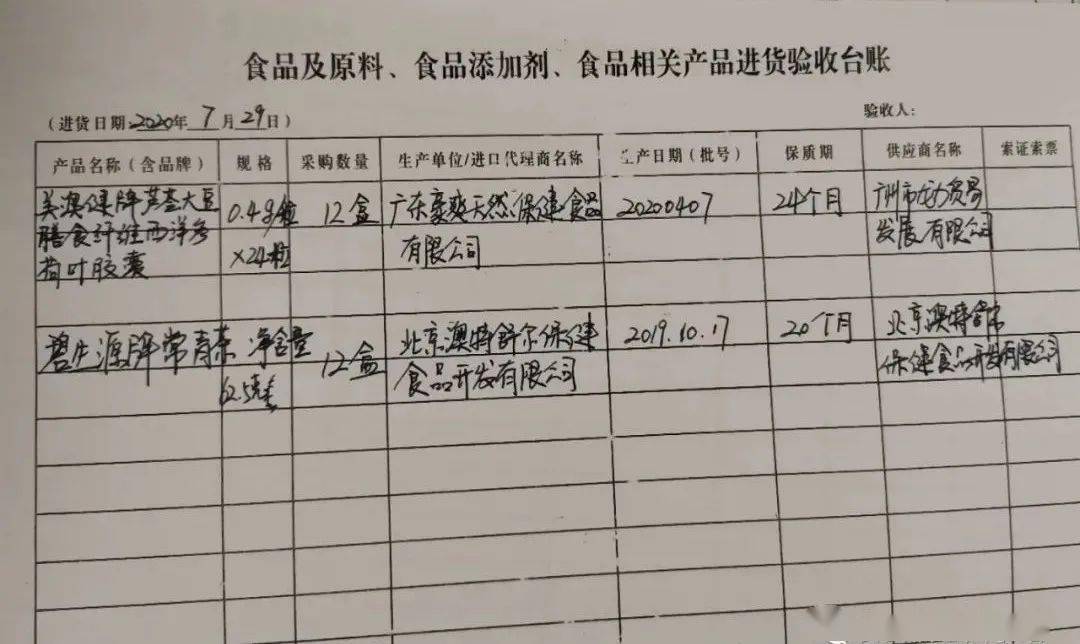 食品及原料、食品添加剂、食品相关产品进货验收台账
(进货日期:2020年 7月 29日) 验收人:
产品名称(含品牌) 规格 采购数量 生产单位/进口代理商名称 生产日期(批号) 保质期 供应商名称 索证索票
美澳健牌芦荟大豆 0.4g/粒 12盒 广东豪爽天然保健食品 20200407 24个月 广州市 贸易
膳食纤维西洋参 ×24粒 有限公司 发展有限公司
荷叶胶囊
碧生源牌常菁茶 净含量 12盒 北京澳特舒尔保健 2019.10.17 20个月 北京澳特舒尔
62.5克 食品开发有限公司 保健食品开发有限公司